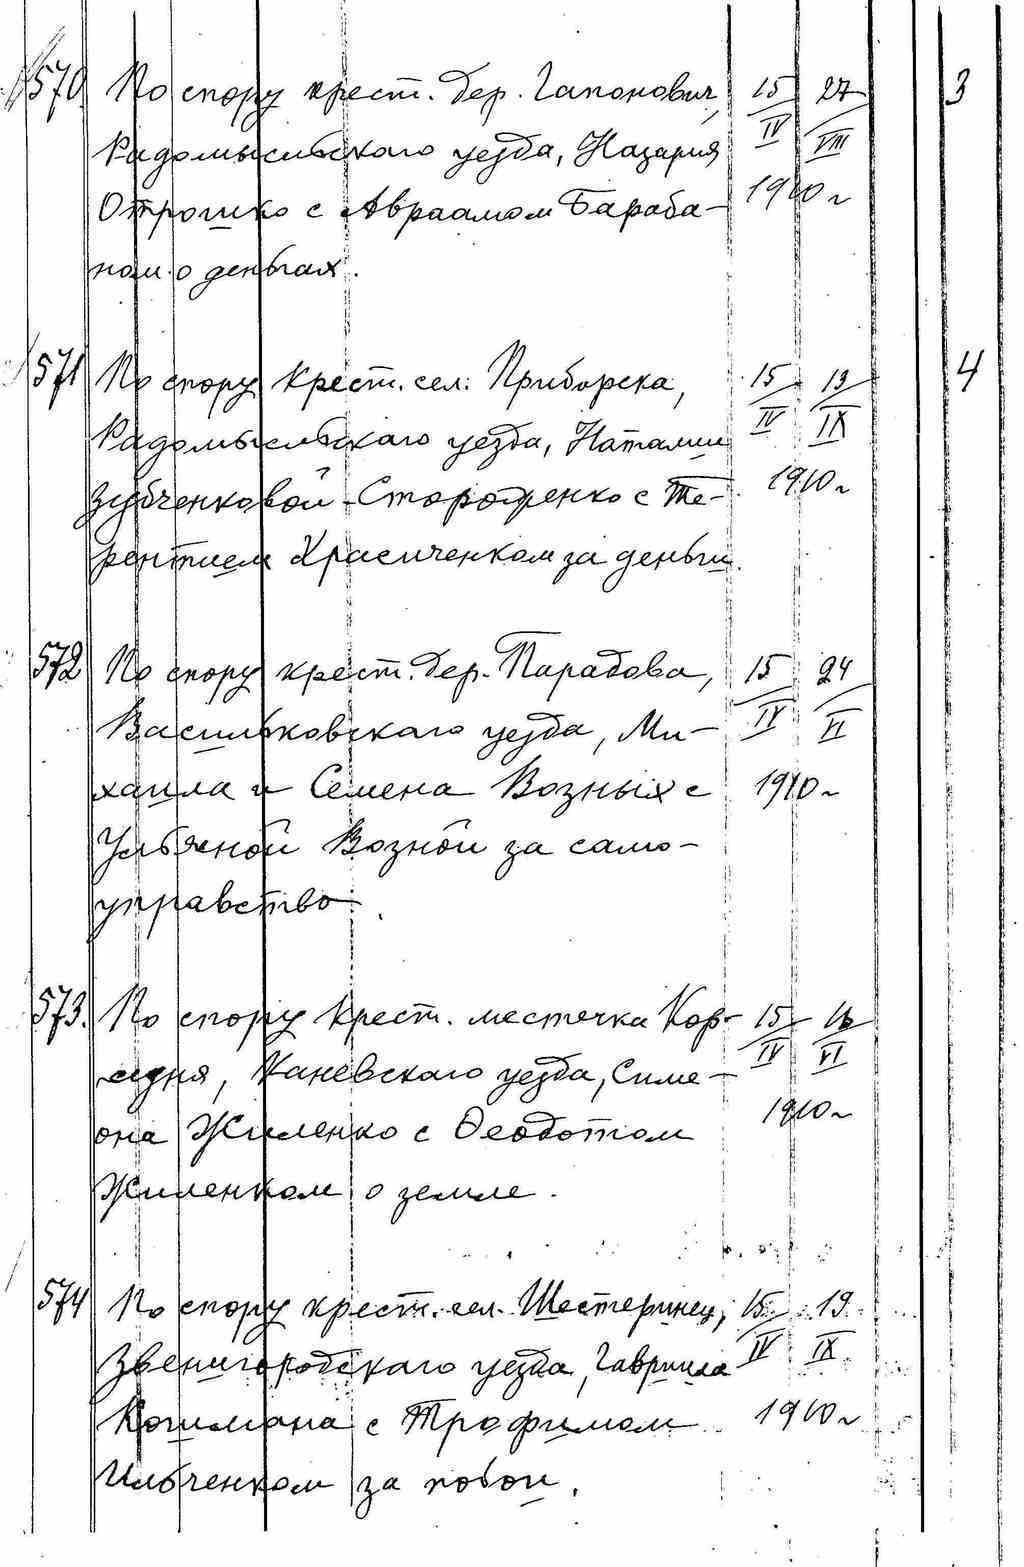 570. По спору крест. дер. Гапонович, 15 27 3
Радомысльского уезда, Назария IV VIII
Отрошко с Авраамом Бараба- 1910 г
ном о деньгах.
571 По спору крест. сел. Приборска, 15 13 4
Радомысльского уезда, Наталии IV IX
Зубченковой-Стороженко с Те- 1910 г
рентием Красиченком за деньги.
572 По спору крест. дер. Парадова, 15 24
Васильковского уезда, Ми- IV VI
хаила и Семена Возных с 1910 г
Ульяной Возной за само-
управство.
573. По спору крест. местечка Кор- 15 16
суня, Каневского уезда, Симе- IV VI
она Жиленко с Феодотом 1910 г
Жиленком о земле.
574 По спору крест. сел. Шестеринец, 15 19
Звенигородского уезда, Гавриила IV IX
Кошмана с Трофимом 1910 г
Ильченком за побои.